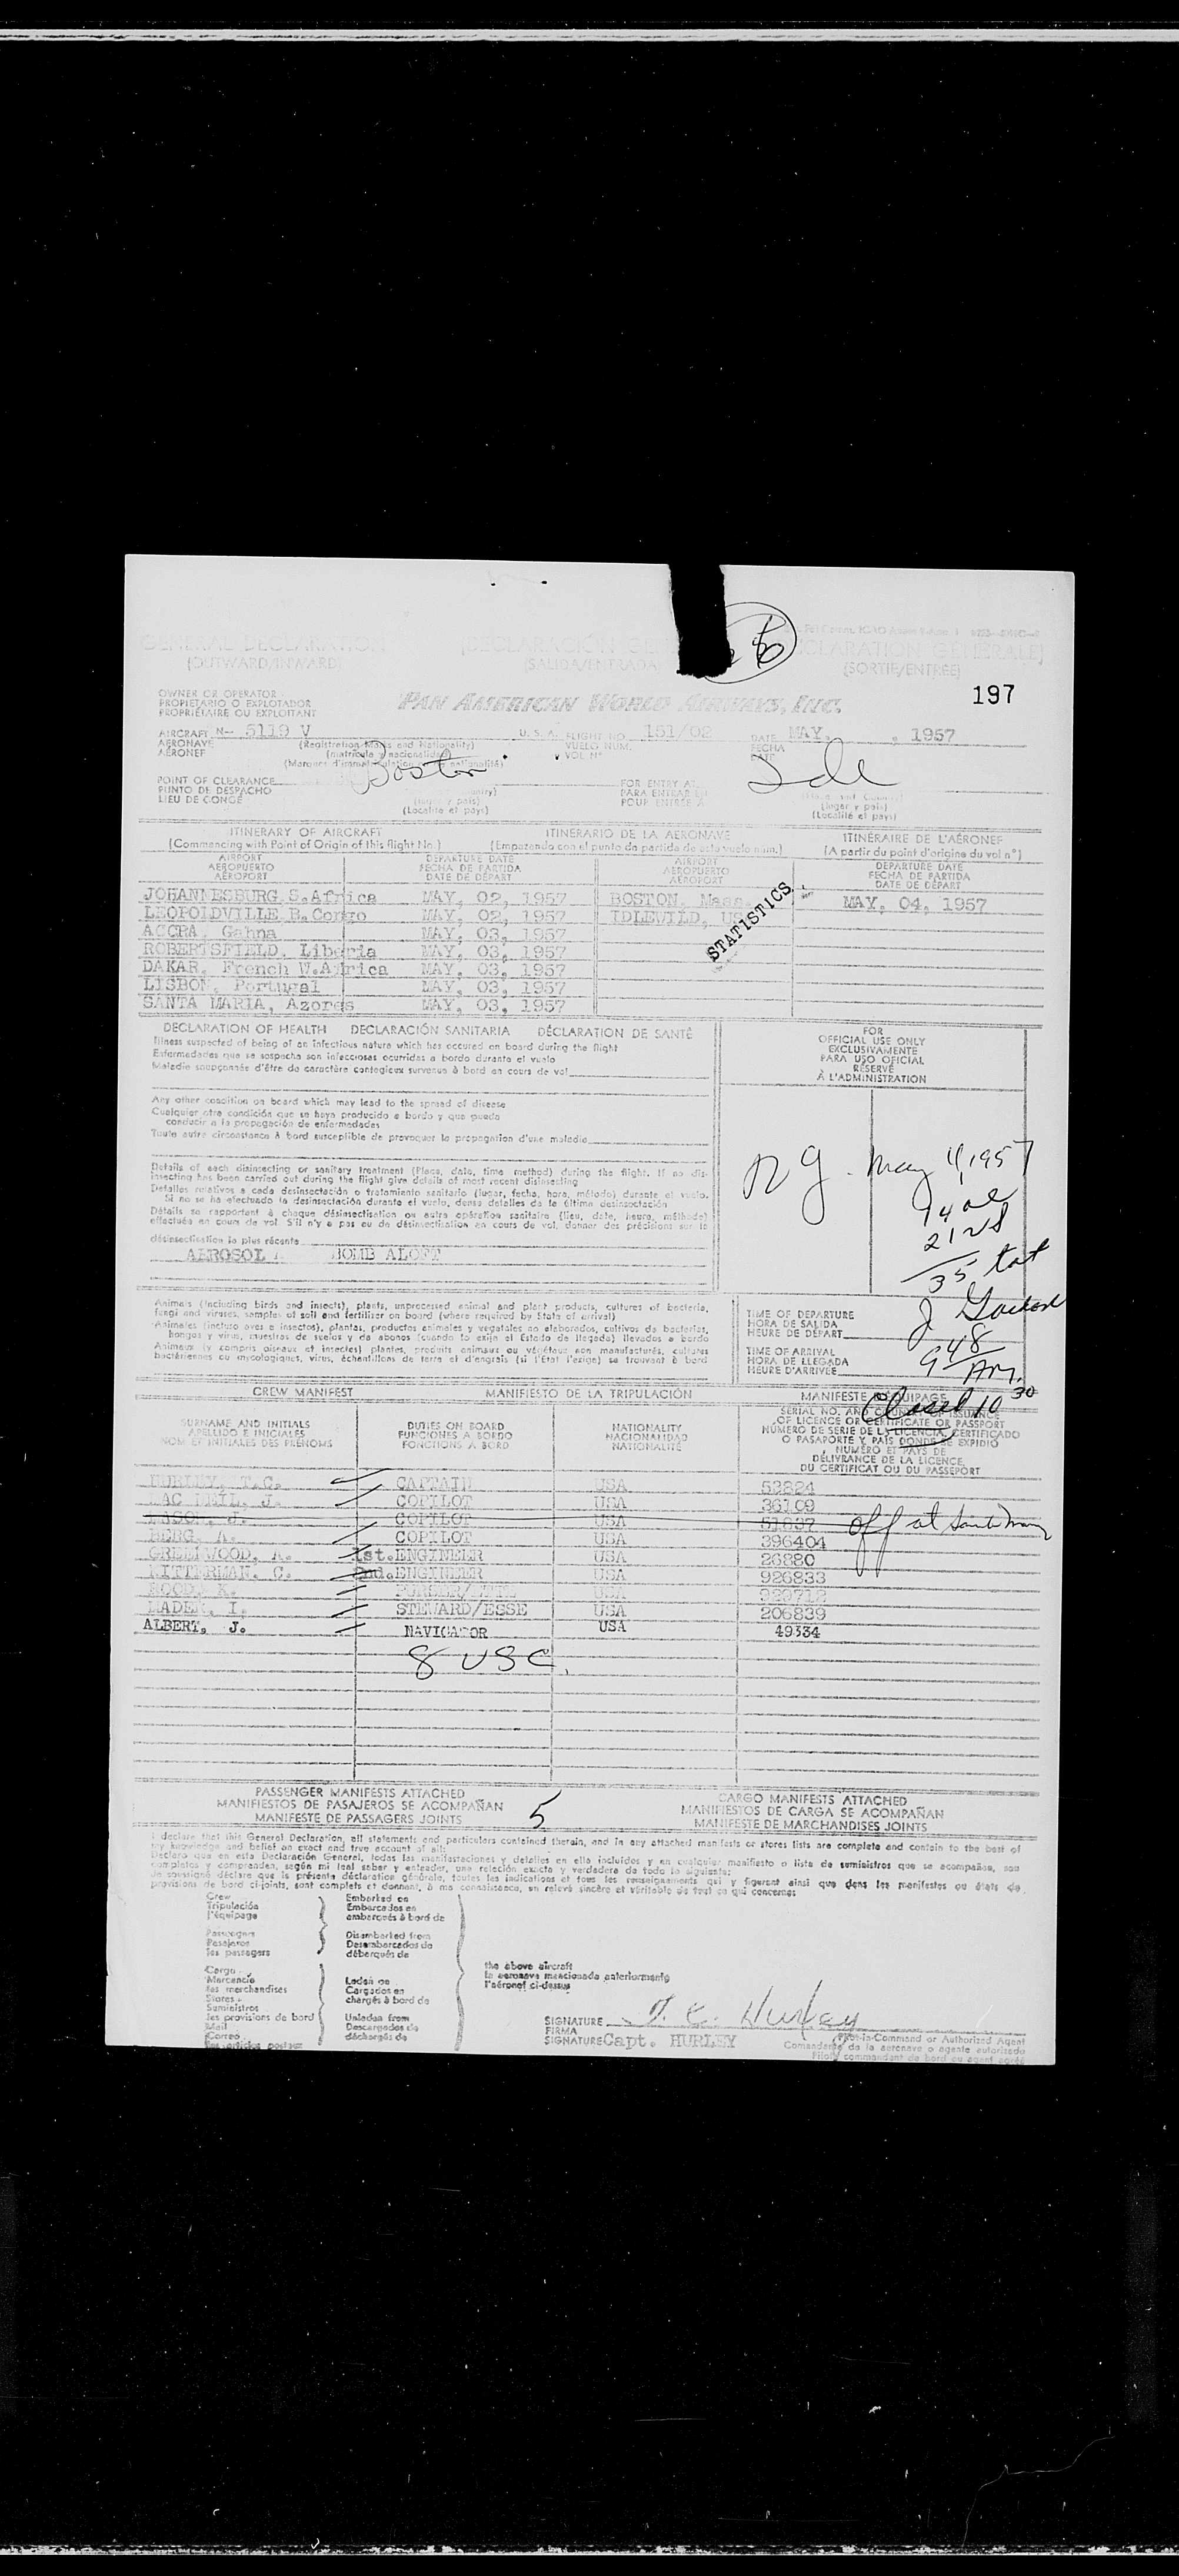 GENERAL DECLARATION (DECLARACION GE DECLARATION GENERALE)
(OUTWARD/INWARD) (SALIDA/ENTRADA) (SORTIE/ENTREE)
197
OWNER OR OPERATOR
PROPIETARIO O EXPLOTADOR
PROPRIÉTAIRE OU EXPLOITANT
PAN AMERICAN WORLD AIRWAYS, INC.
AIRCRAFT N- 5119 V U. S. A. FLIGHT NO. 151/02 DATE MAY, , 1957
AERONAVE (Registration Marks and Nationality) VUELO NUM. FECHA
AÉRONEF (matrícula y nacionalidad) VOL N° DATE
POINT OF CLEARANCE Boston FOR ENTRY AT Idl
PUNTO DE DESPACHO PARA ENTRAR EN
LIEU DE CONGÉ (lugar y país) POUR ENTRÉE À (lugar y país)
(Localité et pays) (Localité et pays)
ITINERARY OF AIRCRAFT ITINERARIO DE LA AERONAVE ITINÉRAIRE DE L'AÉRONEF
(Commencing with Point of Origin of this flight No.) (Empezando con el punto de partida de este vuelo núm.) (A partir du point d'origine du vol n°)
AIRPORT DEPARTURE DATE AIRPORT DEPARTURE DATE
AEROPUERTO FECHA DE PARTIDA AEROPUERTO FECHA DE PARTIDA
AÉROPORT DATE DE DÉPART AÉROPORT DATE DE DÉPART
JOHANNESBURG,S.Africa MAY, 02, 1957 BOSTON, Mass. MAY, 04, 1957
LEOPOLDVILLE,B.Congo MAY, 02, 1957 IDLEWILD, US
ACCRA, Gahna MAY, 03, 1957
STATISTICS
ROBERTSFIELD, Liberia MAY, 03, 1957
DAKAR, French W.Africa MAY, 03, 1957
LISBON, Portugal MAY, 03, 1957
SANTA MARIA, Azores MAY, 03, 1957
DECLARATION OF HEALTH DECLARACIÓN SANITARIA DÉCLARATION DE SANTÉ
Illness suspected of being of an infectious nature which has occured on board during the flight
Enfermedades que se sospecha son infecciosas ocurridas a bordo durante el vuelo
Maladie soupçonnée d'être de caractère contagieux survenue à bord en cours de vol
FOR
OFFICIAL USE ONLY
EXCLUSIVAMENTE
PARA USO OFICIAL
RÉSERVÉ
À L'ADMINISTRATION
Any other condition on board which may lead to the spread of disease
Cualquier otra condición que se haya producido a bordo y que pueda
conducir a la propagación de enfermedades
Toute autre circonstance à bord susceptible de provoquer la propagation d'une maladie
May 4, 1957
Details of each disinsecting or sanitary treatment (Place, date, time method) during the flight. If no dis-
insecting has been carried out during the flight give details of most recent disinsecting
Detalles relativos a cada desinsectación o tratamiento sanitario (lugar, fecha, hora, método) durante el vuelo.
Si no se ha efectuado la desinsectación durante el vuelo, dense detalles de la última desinsectación
Détails se rapportant à chaque désinsectisation ou autre opération sanitaire (lieu, date, heure, méthode)
effectuée en cours de vol. S'il n'y a pas eu de désinsectisation en cours de vol, donner des précisions sur la
désinsectisation la plus récente
AEROSOL BOMB ALOFT
14 al
21 us
35 tot
Animals (including birds and insects), plants, unprocessed animal and plant products, cultures of bacteria,
fungi and viruses, samples of soil and fertilizer on board (where required by State of arrival)
Animales (incluso aves e insectos), plantas, productos animales y vegetales no elaborados, cultivos de bacterias,
hongos y virus, muestras de suelos y de abonos (cuando lo exija el Estado de llegada) llevados a bordo
Animaux (y compris oiseaux et insectes) plantes, produits animaux ou végétaux non manufacturés, cultures
bactériennes ou mycologiques, virus, échantillons de terre et d'engrais (si l'État l'exige) se trouvant à bord
TIME OF DEPARTURE
HORA DE SALIDA
HEURE DE DÉPART
TIME OF ARRIVAL
HORA DE LLEGADA
HEURE D'ARRIVÉE
9 48 AM.
Closed 10 30
CREW MANIFEST MANIFIESTO DE LA TRIPULACIÓN MANIFESTE ÉQUIPAGE
SURNAME AND INITIALS DUTIES ON BOARD NATIONALITY
APELLIDO E INICIALES FUNCIONES A BORDO NACIONALIDAD
NOM ET INITIALES DES PRÉNOMS FONCTIONS À BORD NATIONALITÉ
SERIAL NO. AND COUNTRY OF ISSUANCE
OF LICENCE OR CERTIFICATE OR PASSPORT
NÚMERO DE SERIE DE LA LICENCIA, CERTIFICADO
O PASAPORTE Y PAÍS DONDE SE EXPIDIÓ
NUMÉRO ET PAYS DE
DÉLIVRANCE DE LA LICENCE,
DU CERTIFICAT OU DU PASSEPORT
HURLEY, T.C. CAPTAIN USA 53824
MAC NEIL, J. COPILOT USA 36109
MASON, J. COPILOT USA 51837 off at Santa Mar
BERG, A. COPILOT USA 396404
GREENWOOD, A. 1st.ENGINEER USA 26880
KITTERMAN, C. 2nd.ENGINEER USA 926833
USA
MADEN, I. STEWARD/ESSE USA 206839
ALBERT, J. NAVIGATOR USA 49334
8 USC.
PASSENGER MANIFESTS ATTACHED CARGO MANIFESTS ATTACHED
MANIFIESTOS DE PASAJEROS SE ACOMPAÑAN 5 MANIFIESTOS DE CARGA SE ACOMPAÑAN
MANIFESTE DE PASSAGERS JOINTS MANIFESTE DE MARCHANDISES JOINTS
I declare that this General Declaration, all statements and particulars contained therein, and in any attached manifests or stores lists are complete and contain to the best of
my knowledge and belief an exact and true account of all:
Declaro que en esta Declaración General, todas las manifestaciones y detalles en ella incluidos y en cualquier manifiesto o lista de suministros que se acompañe, son
completos y comprenden, según mi leal saber y entender, una relación exacta y verdadera de todo lo siguiente:
Je soussigné déclare que la présente déclaration générale, toutes les indications et tous les renseignements qui y figurent ainsi que dans les manifestes ou états de
provisions de bord ci-joints, sont complets et donnent, à ma connaissance, un relevé sincère et véritable de tout ce qui concerne:
Crew Embarked on
Tripulación Embarcados en
l'équipage embarqués à bord de
Passengers Disembarked from
Pasajeros Desembarcados de
les passagers débarqués de
Cargo
Mercancía Laden on
les marchandises Cargados en
Stores chargés à bord de
Suministros
les provisions de bord Unladen from
Mail Descargados de
Correo déchargés de
les articles postaux
the above aircraft
la aeronave mencionada anteriormente
l'aéronef ci-dessus
SIGNATURE T. C. Hurley
FIRMA
SIGNATURE Capt. HURLEY
Pilot-in-Command or Authorized Agent
Comandante de la aeronave o agente autorizado
Pilote commandant de bord ou agent agréé